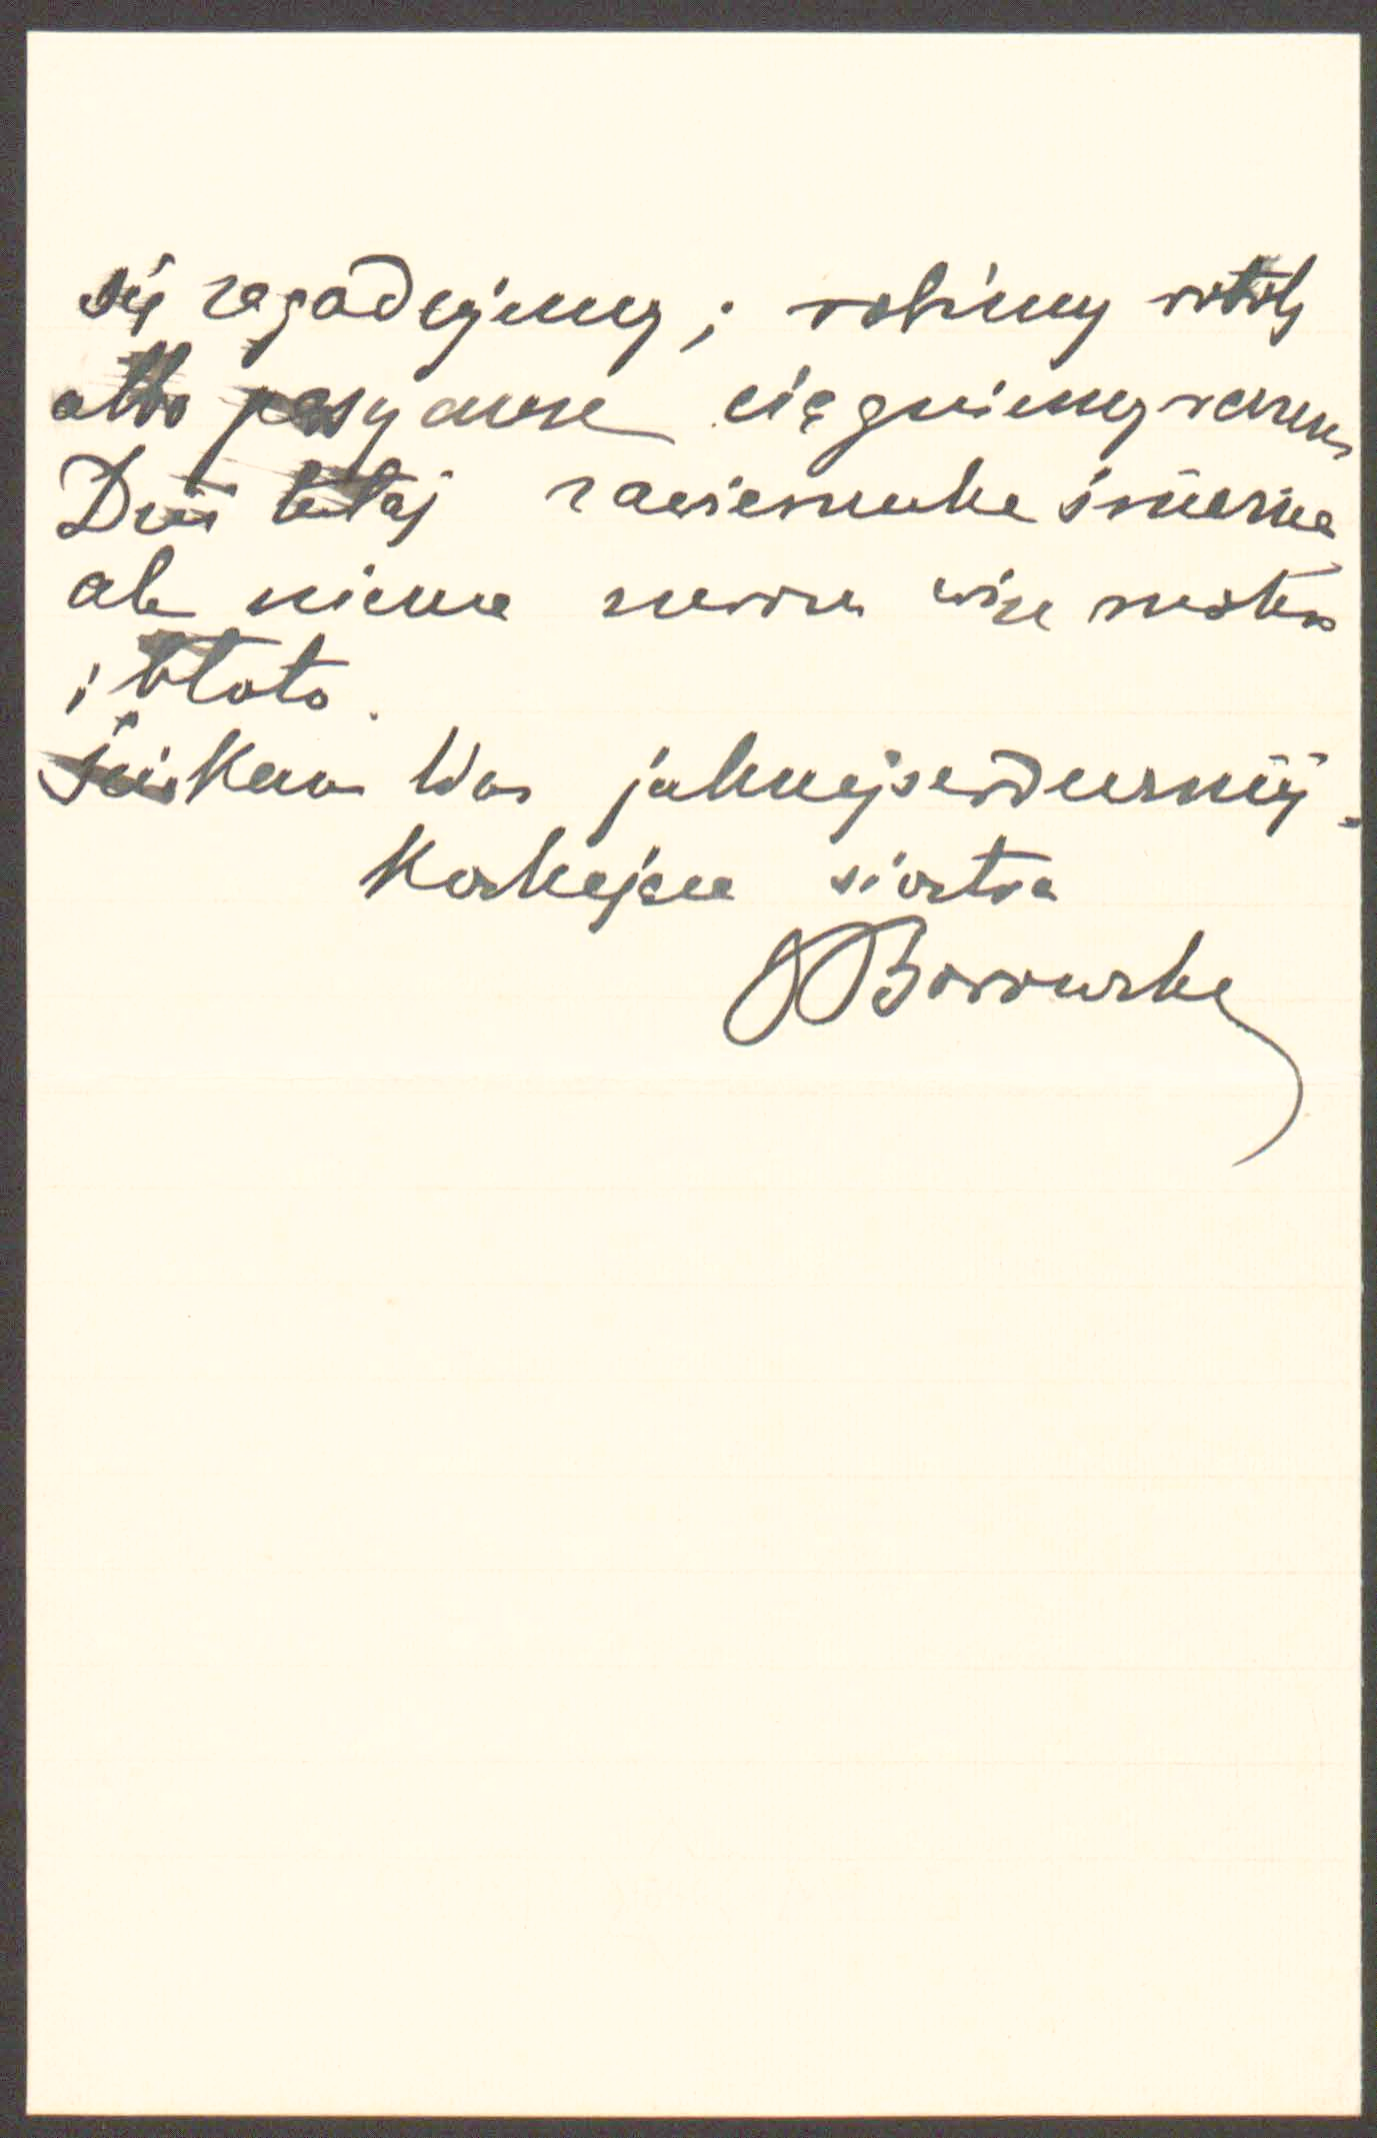 się zagadujemy; robimy roboty
albo pasyanse ciągniemy razem
Dziś tutaj zawierucha śnieżna
ale niema mrozu więc mokro
i błoto.
Ściskam Was jaknajserdeczniej.
Kochająca siostra
Borowska